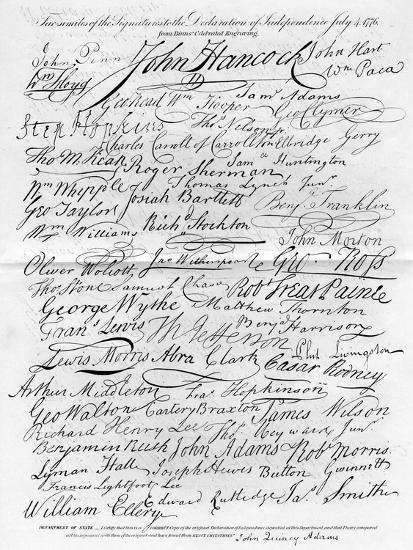 Fac-similes of the Signatures to the Declaration of Independence July 4. 1776,
from Binns' Celebrated Engraving.
John Penn John Hancock John Hart
Wm Floyd Wm Paca
Geo Read Wm Hooper Saml Adams
Geo Clymer
Step Hopkins Thos Nelson jr
Charles Carroll of Carrollton Elbridge Gerry
Tho M:Kean Roger Sherman Saml Huntington
Wm Whipple Thomas Lynch Junr
Josiah Bartlett Benj Franklin
Geo Taylor
Wm Williams Richd Stockton
John Morton
Oliver Wolcott Jno Witherspoon Geo Ross
Thos Stone Samuel Chase Robt Treat Paine
George Wythe Matthew Thornton
Frans Lewis Th Jefferson Benja Harrison
Lewis Morris Abra Clark Phil Livingston
Casar Rodney
Arthur Middleton Fras Hopkinson
Geo Walton Carter Braxton James Wilson
Richard Henry Lee Thos Heyward Junr
Benjamin Rush John Adams Robt Morris
Lyman Hall Joseph Hewes Button Gwinnett
Francis Lightfoot Lee
William Ellery Edward Rutledge Jas Smith
DEPARTMENT OF STATE I certify that this is a CORRECT Copy of the original Declaration of Independence deposited at this Department and that I have compared
all the signatures with those of the original and have found them EXACT IMITATIONS. John Quincy Adams